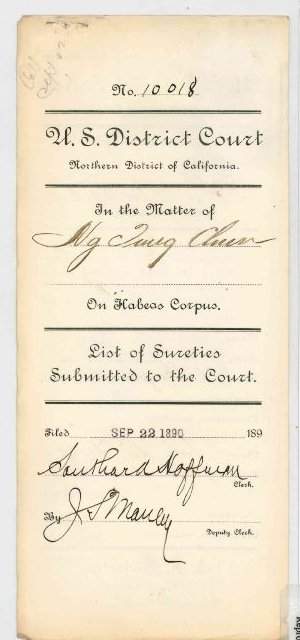 No. 10018
U. S. District Court
Northern District of California.
In the Matter of
Ng Quey Chun
On Habeas Corpus.
List of Sureties
Submitted to the Court.
Filed SEP 22 1890 189
Southard Hoffman
Clerk.
By J. S. Manley
Deputy Clerk.